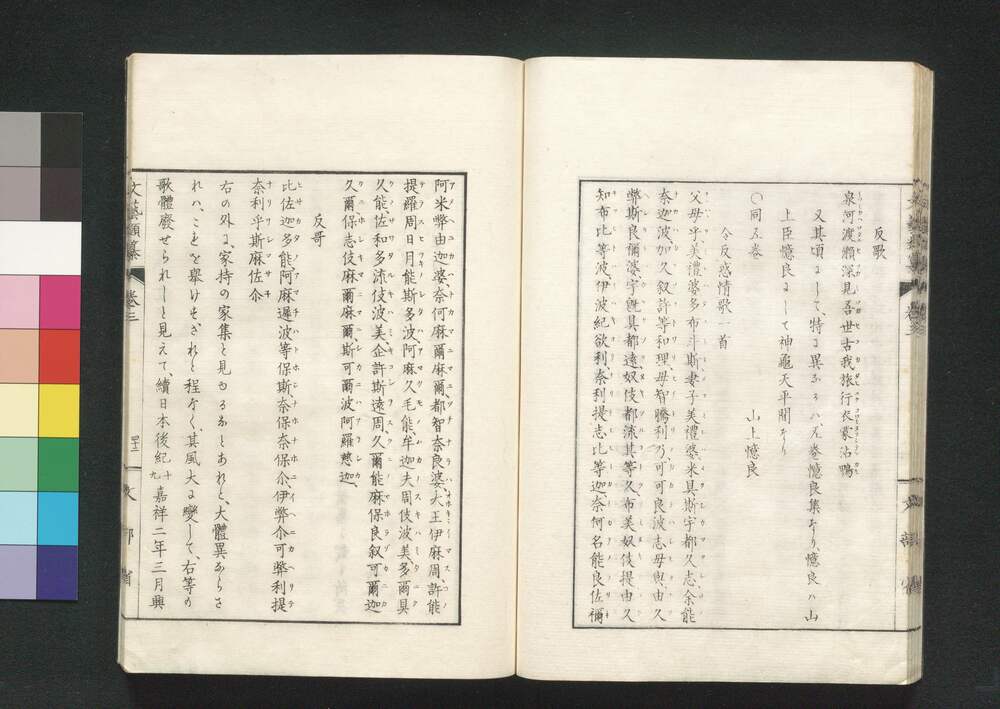 反歌
泉河渡瀬深見吾世古我旅行衣蒙沾鴨
又其頃にして、特に異なるハ、五巻憶良集なり、憶良ハ山
上臣憶良にして神龜天平間なり
〇同五巻　　　　　山上憶良
令反惑情歌一首
父母乎、美禮婆多布斗斯、妻子美禮婆、米具斯宇都久志、余能
奈迦波、加久叙許等和理、母智騰利乃、可可良波志母與、由久
弊斯良禰婆、宇既具都遠、奴伎都流其等久、布美奴伎提、由久
知布比等波、伊波紀欲利、奈利提志比等迦、奈何名能良佐禰
阿米弊由迦婆、奈何麻爾麻爾、都智奈良婆、大王伊麻周、許能
提羅周日月能斯多波、阿麻久毛能、牟迦夫周伎波美、多爾具
久能、佐和多流伎波美、企許斯遠周、久爾能麻保良叙、可爾迦
久爾、保志伎麻爾麻爾、斯可爾波阿羅慈迦、
反哥
比佐迦多能、阿麻遲波等保斯、奈保奈保尒、伊弊尒可弊利提
奈利乎斯麻佐尒
右の外に、家持の家集と見ゆるなとあれと、大體異ならさ
れハ、こゝを擧けせされと程なく、其風大に變して、右等の
歌體廢せられしと見えて、續日本後紀十九嘉祥二年三月興
文藝類纂　卷三　四十二　文部省